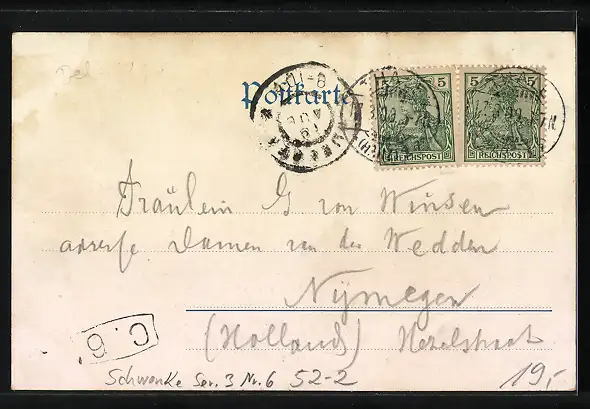 Del
Postkarte
5 5 5 5
REICHSPOST REICHSPOST
Fräulein G von Winsen
adresse Damen van der Wedden
Nÿmegen
(Holland) Hezelstraat
C. 6
Schwenke Ser. 3 Nr. 6 52-2
19,-